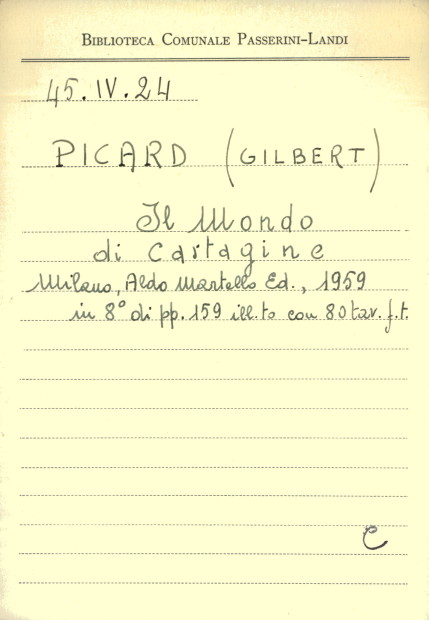 BIBLIOTECA COMUNALE PASSERINI-LANDI
45.IV.24
PICARD (GILBERT)
Il Mondo
di Cartagine
Milano, Aldo Martello Ed., 1959
in 8° di pp. 159 ill.to con 80 tav. f.t.
C